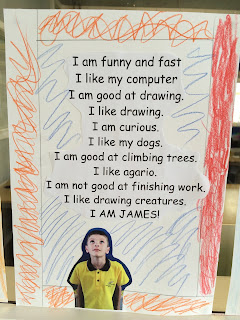 I am funny and fast
I like my computer
I am good at drawing.
I like drawing.
I am curious.
I like my dogs.
I am good at climbing trees.
I like agario.
I am not good at finishing work.
I like drawing creatures.
I AM JAMES!